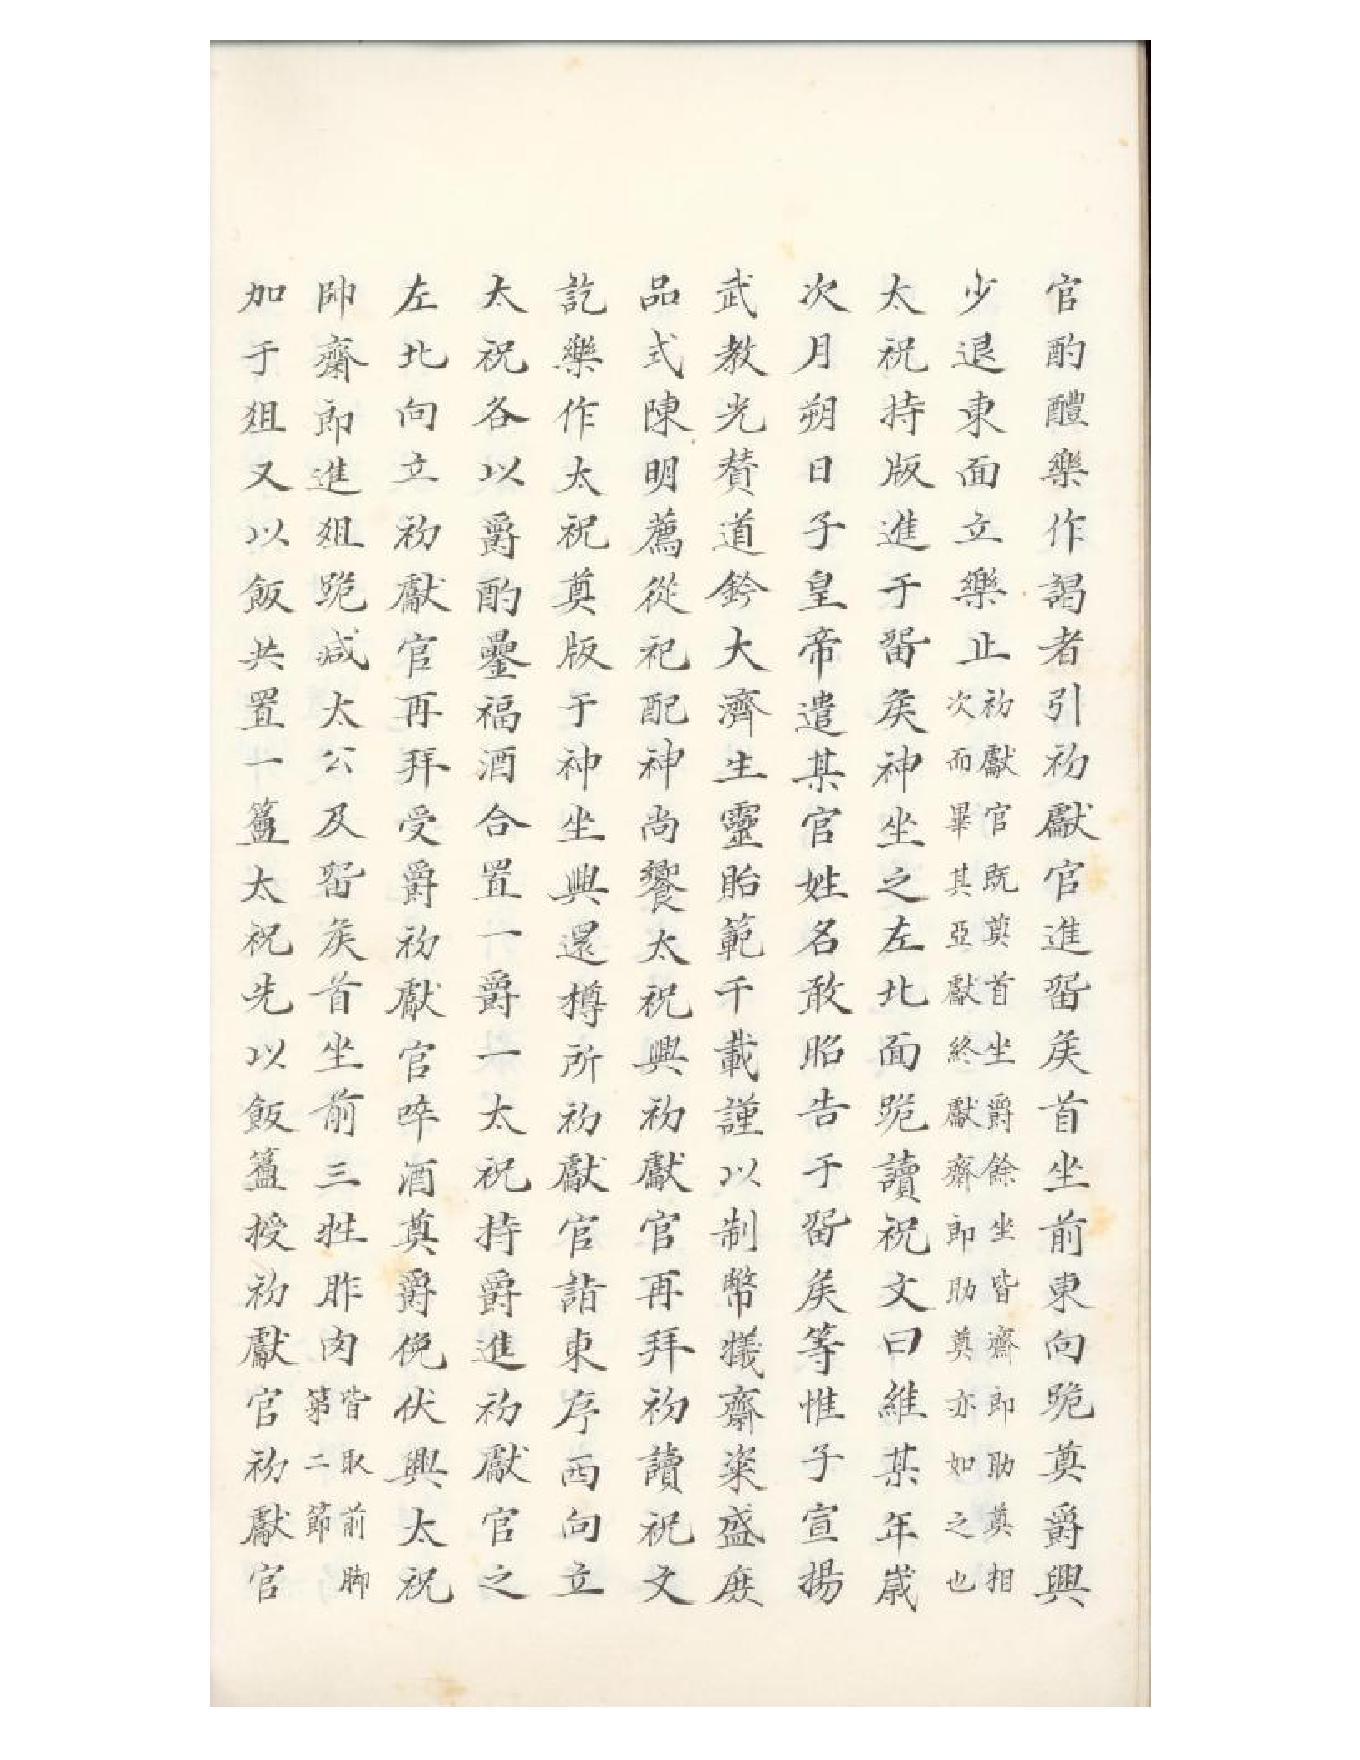 官酌醴樂作謁者引初獻官進畱矦首坐前東向跪奠爵興
少退東面立樂止初獻官既奠首坐爵餘坐皆齋郎助奠相次而畢其亞獻終獻齋郎助奠亦如之也
太祝持版進于畱矦神坐之左北面跪讀祝文曰維某年歲
次月朔日子皇帝遣某官姓名敢昭告于畱矦等惟子宣揚
武教光賛道鈐大濟生靈貽範千載謹以制幣犧齋粢盛庶
品式陳明薦從祀配神尚饗太祝興初獻官再拜初讀祝文
訖樂作太祝奠版于神坐興還樽所初獻官詣東序西向立
太祝各以爵酌罍福酒合置一爵一太祝持爵進初獻官之
左北向立初獻官再拜受爵初獻官啐酒奠爵俛伏興太祝
帥齋郎進俎跪减太公及畱矦首坐前三牲胙肉皆取前脚第二節
加于俎又以飯共置一簠太祝先以飯簠授初獻官初獻官